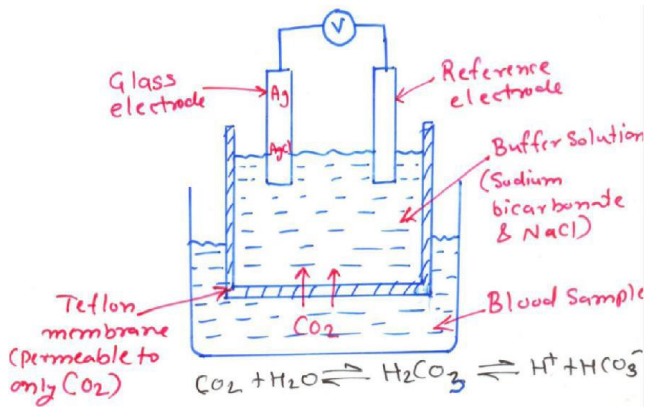 V
Glass
electrode
Ag
AgCl
Reference
electrode
Buffer Solution
(Sodium
bicarbonate
& NaCl)
Teflon
membrane
(permeable to
only CO₂)
CO₂
Blood Sample
CO₂ + H₂O ⇌ H₂CO₃ ⇌ H⁺ + HCO₃⁻